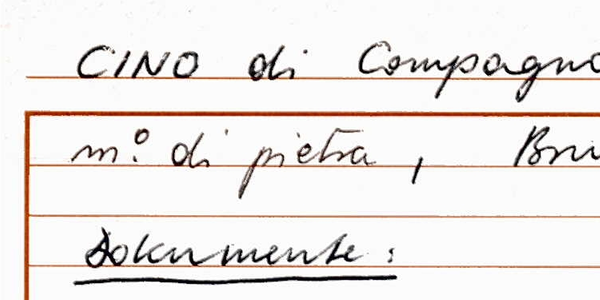 CINO di Compagno
m.º di pietra, Bru
Dokumente: